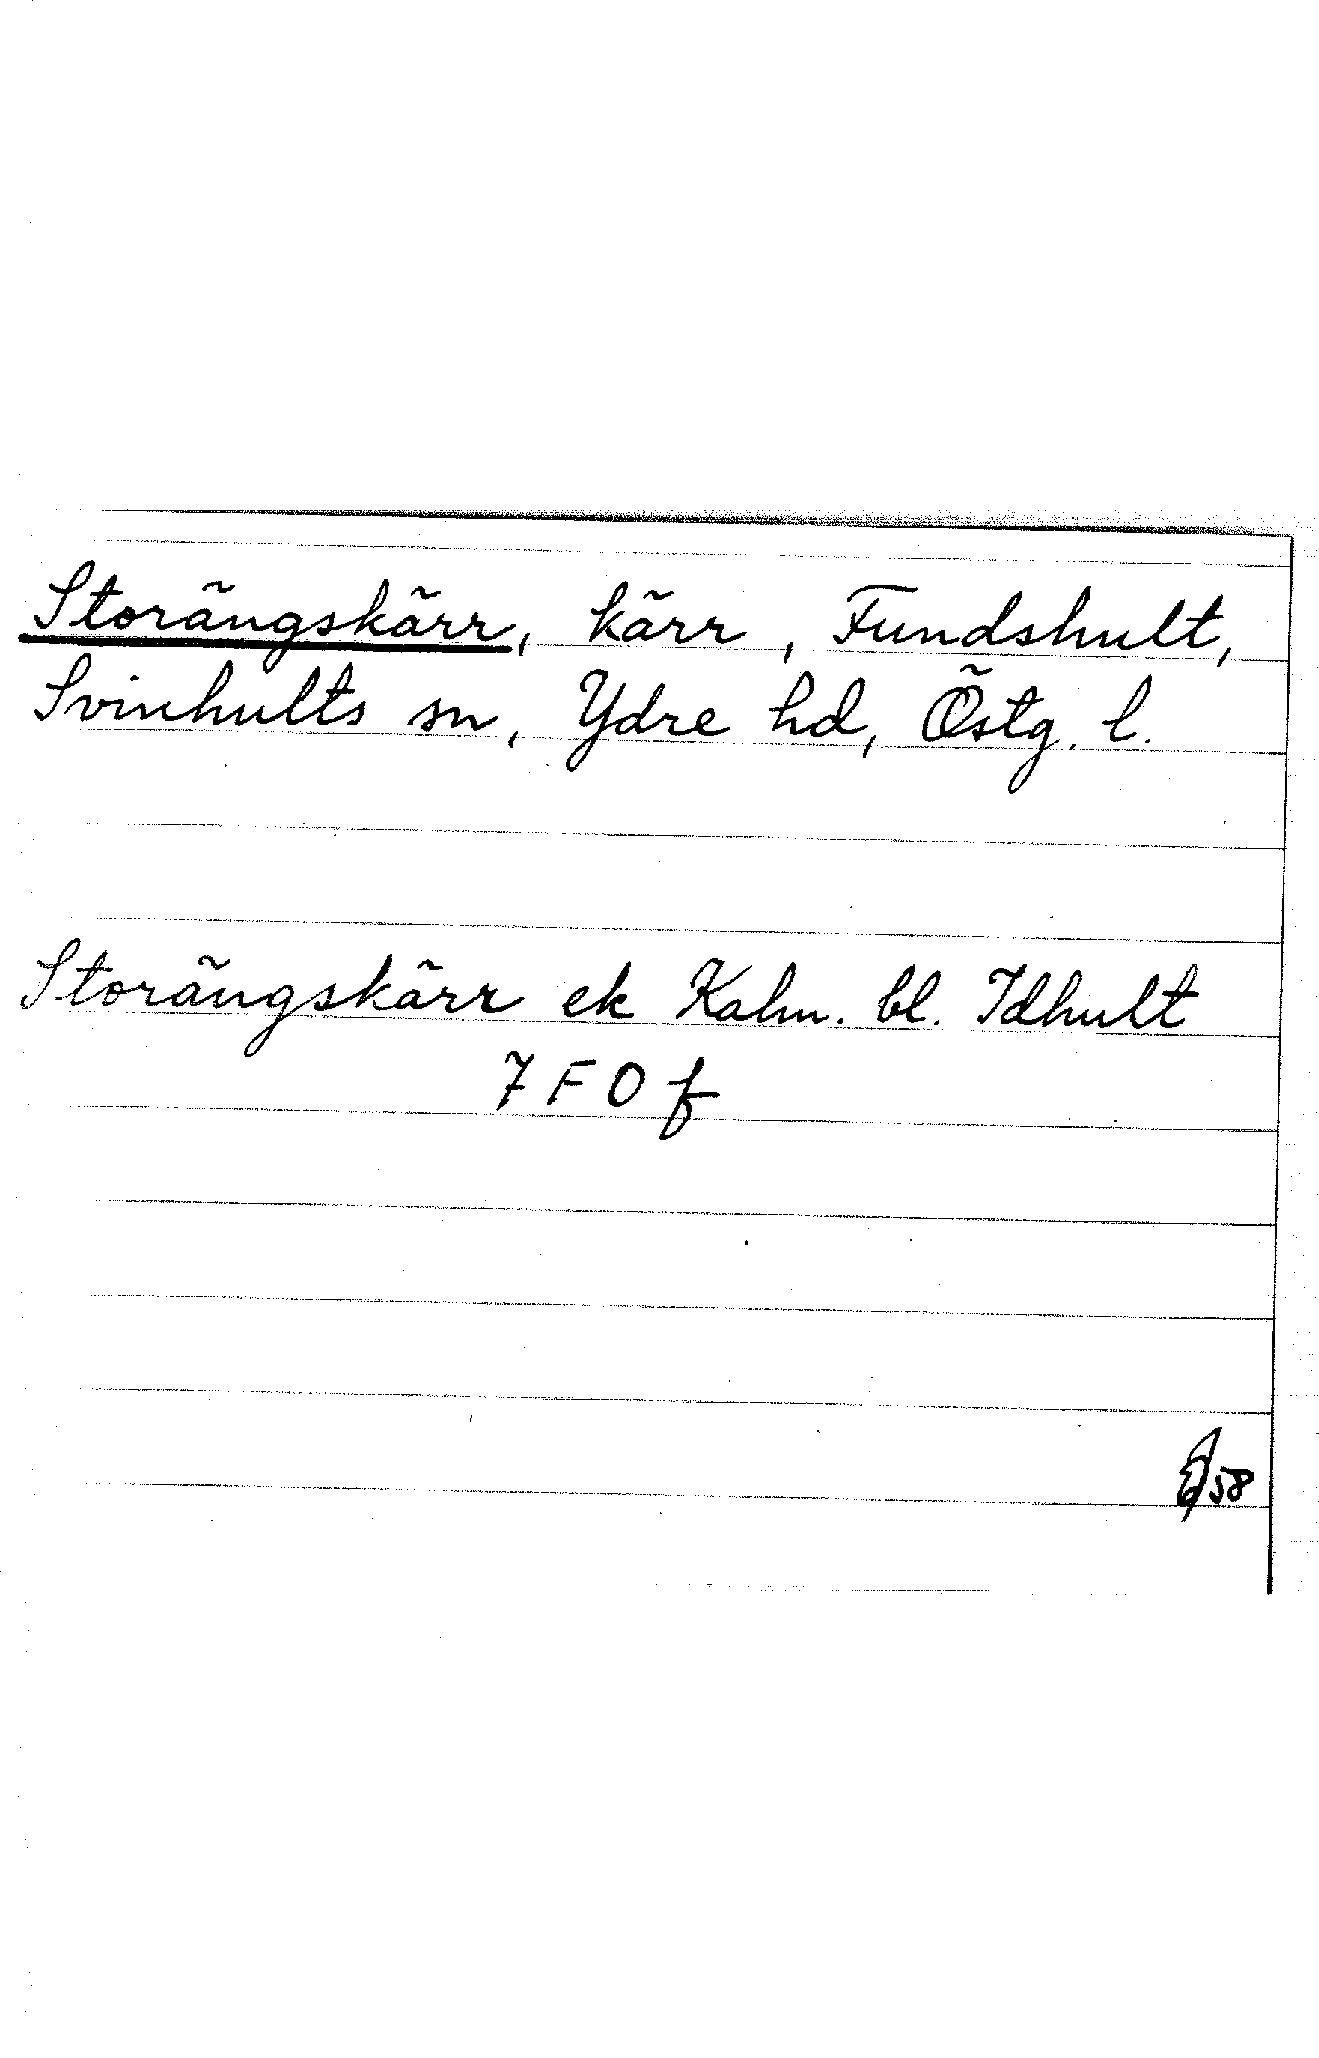 Storängskärr, kärr, Fundshult,
Svinhults sn, Ydre hd, Östg. l.
Storängskärr ek Kalm. bl. Idhult
7 F O f
58